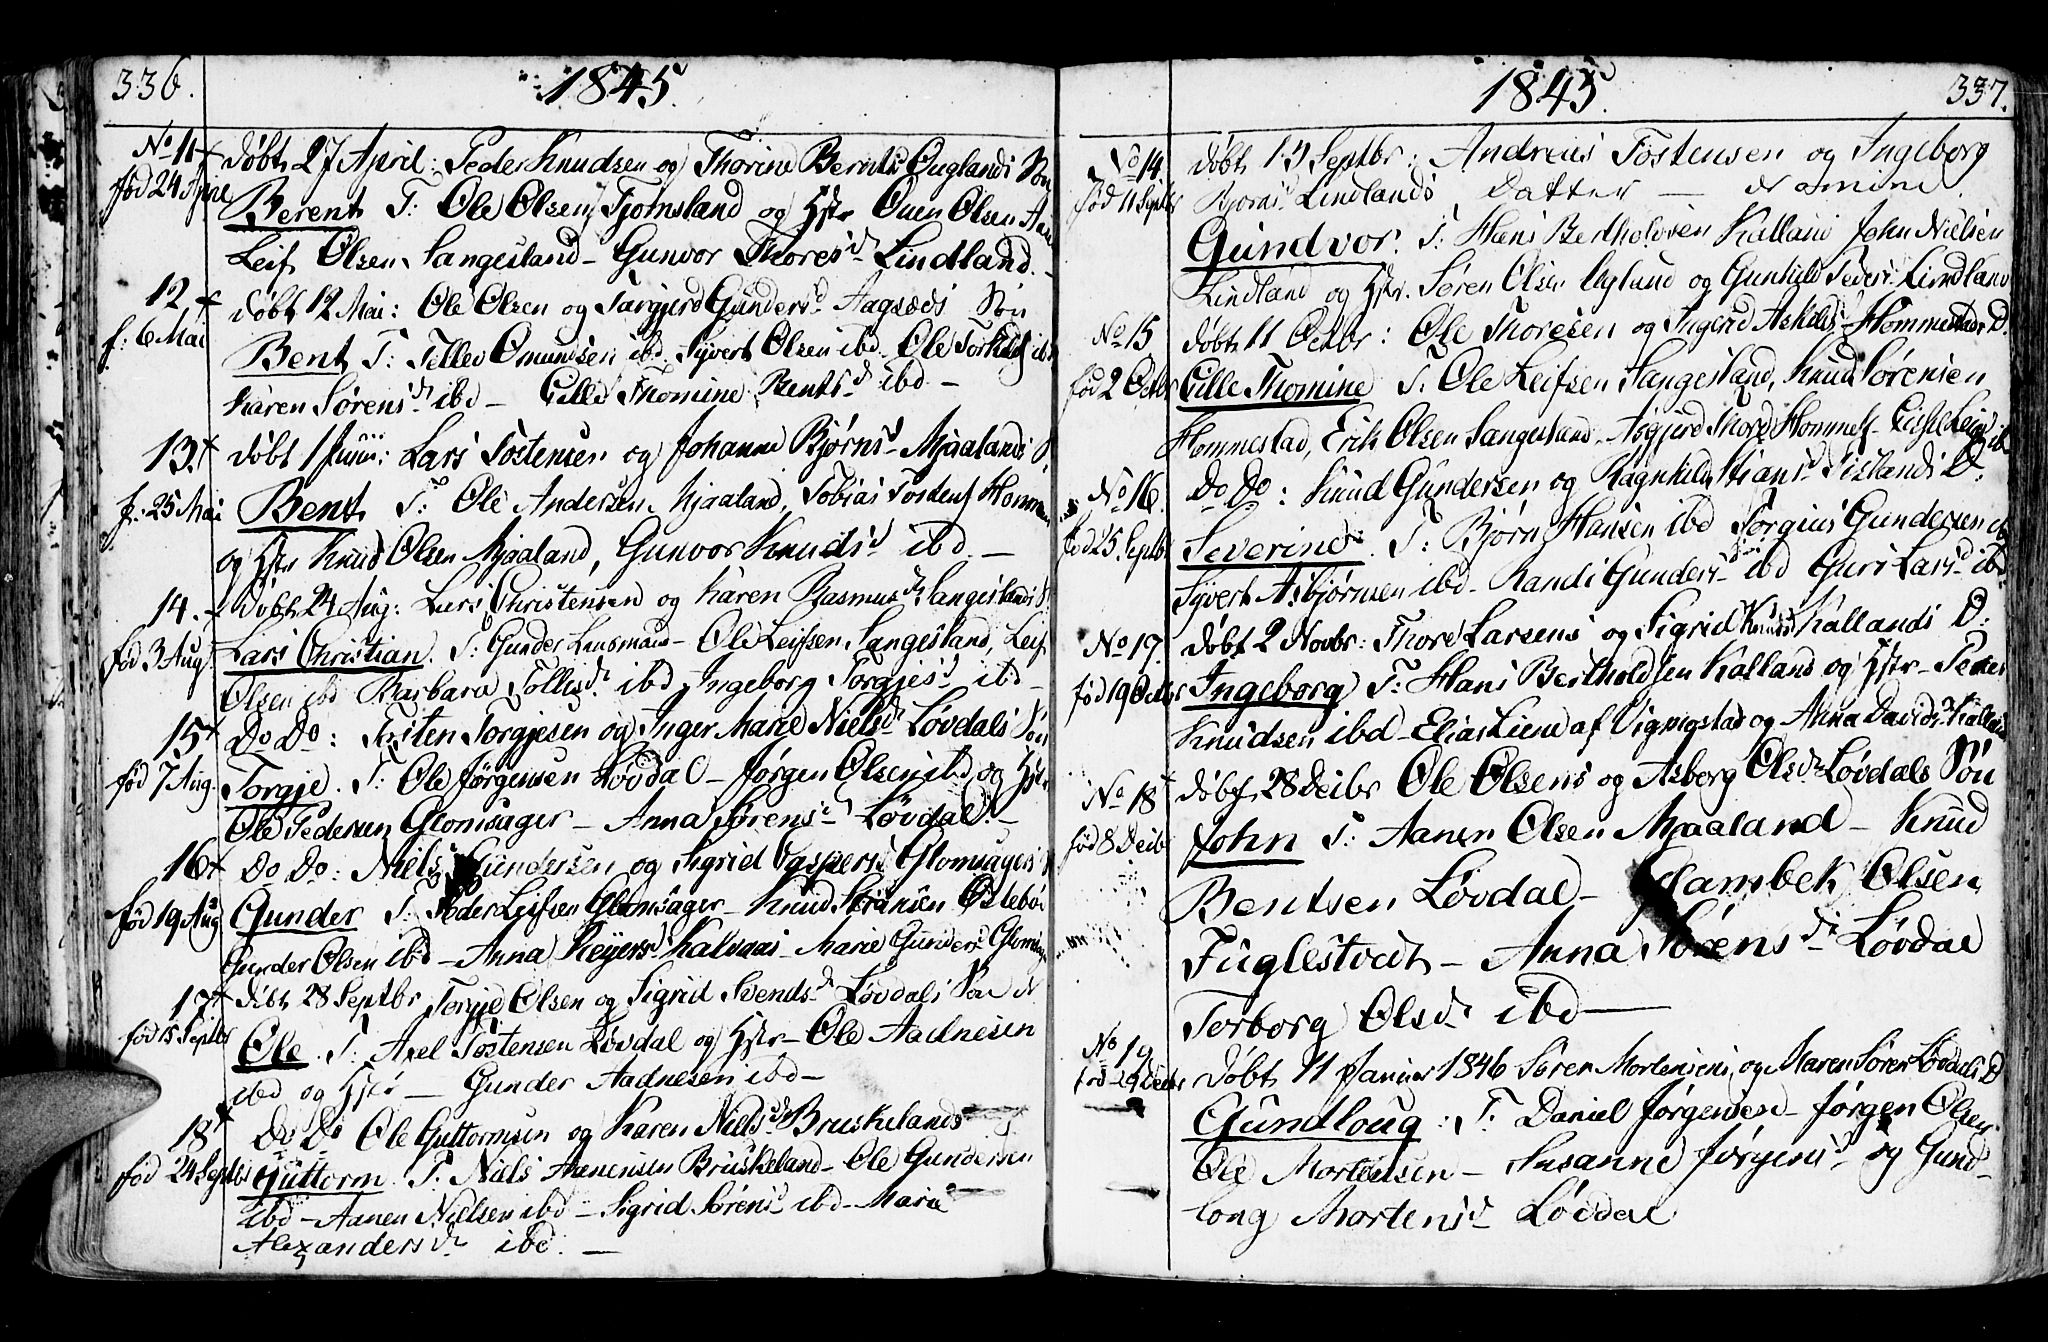 336.
1845.
No 11
født 24 April
Døbt 27 April: Peder Knudsen og Thorine Bernts Øuglands Søn
Berent T: Ole Olsen Tjomsland og Hstr Ouen Olsen
Leif Olsen Sangesland – Gunvor Thoresd Lindland –
12
f: 6 Mai
døbt 12 Mai: Ole Olsen og Targjerd Gundersd Aagsæds Søn
Bent T: Tellev Omundsen ibd Syvert Olsen ibd Ole Torkels ibd
Karen Sørensd ibd – Cille Thomine Bentsd ibd –
13.
f: 25 Mai
døbt 1 Juni: Lars Tostensen og Johanne Bjørnsd Mjaalands S.
Bent T: Ole Andersen Mjaaland, Tobias Tostens Homme
og Hstr Knud Olsen Mjaaland, Gunvor Knudsd ibd –
14.
fød 3 Aug.
Døbt 24 Aug: Lars Christensen og Karen Rasmusd Sangeslands S.
Lars Christian. T: Gunder Linsmand – Ole Leifsen Sangesland, Leif
Olsen ibd Barbara Tollisd ibd Ingeborg Torgjesd ibd –
15
fød 7 Aug.
Do Do: Tosten Torgjesen og Inger Marie Nielsd Løvdals Søn
Torgje. T: Ole Jørgensen Løvdal – Jørgen Olsen ibd og Hstr
Ole Pedersen Glomsager – Anna Sørensd Løvdal –
16
fød 19 Aug
Do Do: Niels Gundersen og Sigrid Caspersd Glomsagers
Gunder T. Peder Leifsen Glomsager – Knud Østebø
Gunder Olsen ibd – Anna Reyersd Kalvaas – Marie Gundersd Glomsag
17
fød 15 Septbr
Døbt 28 Septbr Torgje Olsen og Sigrid Svendsd Løvdals Søn
Ole. T: Axel Tostensen Løvdal og Hstr – Ole Aadnesen
ibd og Hstr – Gunder Aadnesen ibd –
18
fød 24 Septbr
Do Do Ole Guttormsen og Karen Nielsd Bruskelands
Guttorm T. Niels Aanensen Bruskeland – Ole Gundersen
ibd – Aanen Nielsen ibd – Sigrid Sørensd ibd – Marie
Alexandersd ibd. –
337.
1845.
No 14.
fød 11 Septbr
døbt Septbr: Andreas Tostensen og Ingeborg
Bjørnsd Lindlands Datter –
Gundvor. T: Hans Bertholdsen Kalland John Nielsen
Lindland og Hstr. Søren Olsen Ugland og Gunhild Pedersd Lindland
No 15
fød 2 Octbr
døbt 11 Octbr: Ole Thoresen og Ingerid Askilds Hommestads D.
Cille Thomine T. Ole Leifsen Sangesland, Knud Sørensen
Hommestad, Erik Olsen Sangesland – Asgjerd Thoresd Hommest
No 16.
fød 25. Septbr
Do Do: Knud Gundersen og Ragnhild D.
Severine. T: Bjørn Hansen ibd Torgius Gundersen ib
Syvert Asbjørnsen ibd – Randi Gundersd ibd Guri Larsd ibd
No 17.
fød 19 Octbr
døbt 2 Novbr: Thore Larsens og Sigrid Knudsd Kallands D:
Ingeborg T: Hans Bertholdsen Kalland og Hstr – Peder
Knudsen ibd – Elias Liene af Vigmostad og Anna Davidsd Kalland
No 18
fød 8 Decbr
døbt 28 Decbr Ole Olsens og Asborg Olsd Løvdals Søn
John T: Aanen Olsen Mjaaland – Knud
Bentsen Løvdal – Olsen
Fuglestvedt – Anna Sørensd Løvdal
Torborg Olsd ibd –
No 19
fød 29 Decbr
Døbt 11 Januar 1846 Søren Mortensens og Maren Løvdals D
Gundloug: T: Daniel Jørgensen – Jørgen Olsen
Ole Mortensen – Susanne Jørgensd og Gund-
loug Mortensd Løvdal